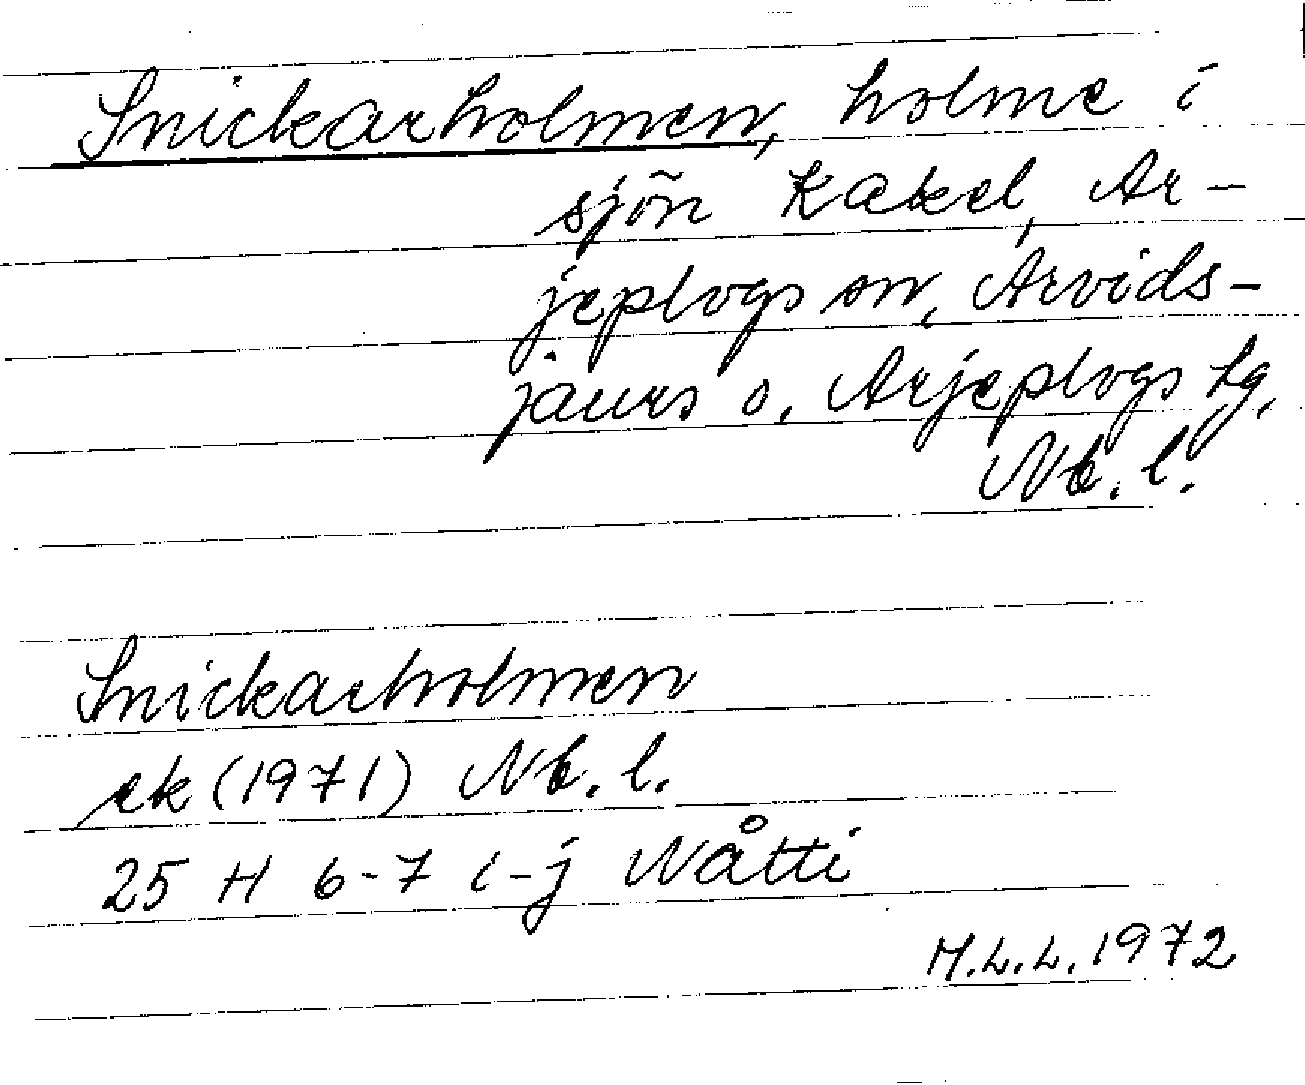 Snickarholmen, holme i
sjön Kakel, Ar-
jeplogs sn, Arvids-
jaurs o. Arjeplogs tg,
Nb. l.
Snickarholmen
ek (1971) Nb. l.
25 H 6-7 i-j Nåtti
M.L.L. 1972